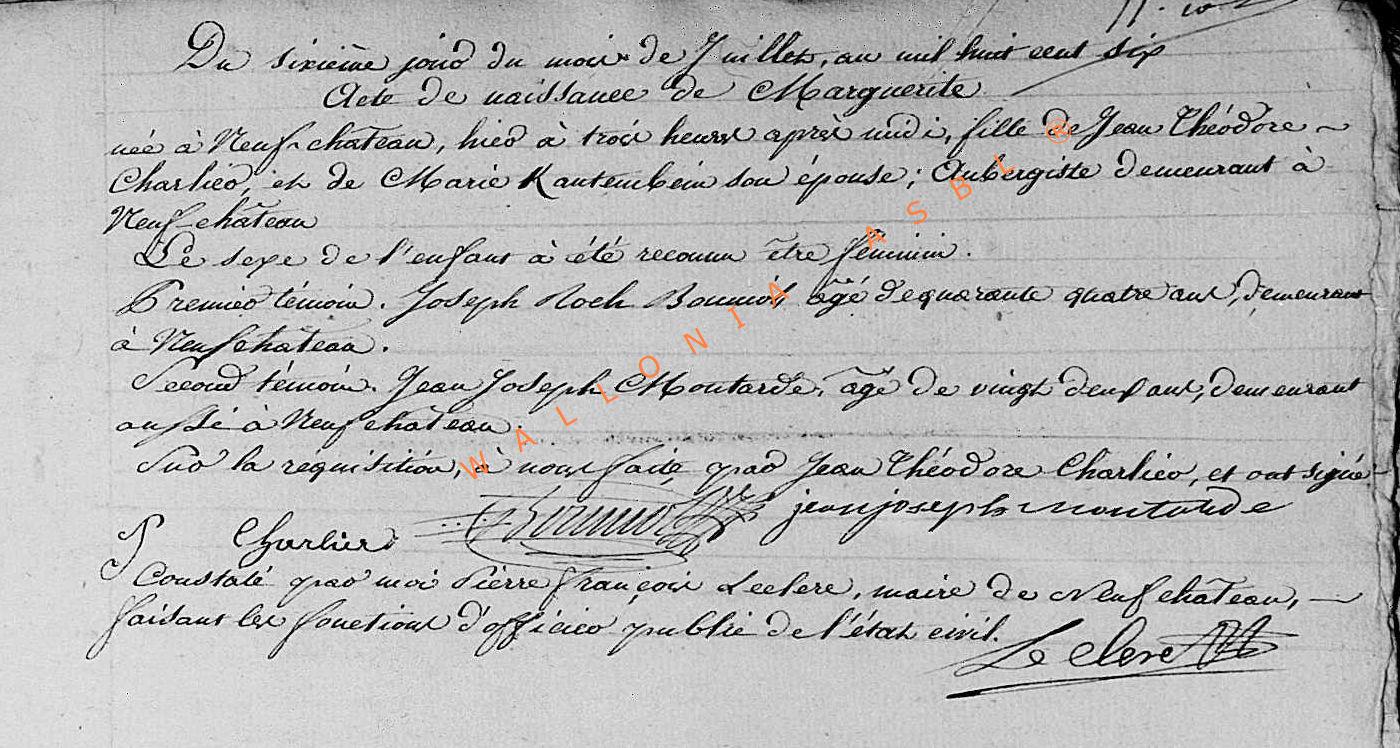 Du sixième jour du mois de Juillet, an mil huit cent six
Acte de naissance de Marguerite
née à Neuf-chateau, hier à trois heures après midi, fille de Jean Théodore
Charlier, et de Marie Kautenbein son épouse; Aubergiste demeurant à
Neuf-château
Le sexe de l'enfant à été reconnu être féminin.
Premier témoin. Joseph Roch agé de quarante quatre ans, demeurant
à Neufchâteau.
Second témoin. Jean Joseph Moutarde, âgé de vingt deux ans, demeurant
aussi à Neufchâteau.
Sur la réquisition, à nous faite par Jean Théodore Charlier, et ont signé
jean joseph moutarde
Charlier
Constaté par moi Pierre françois Leclere, maire de Neufchâteau,
faisant les fonctions d'officier public de l'état civil.
Leclere
WALLONIA ASBL ®